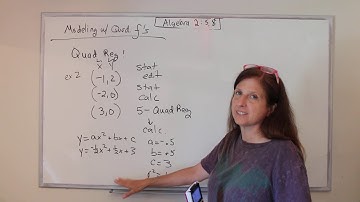 Modeling w/ Quad f's
Algebra 2: 5.8
Quad Reg
x y
ex 2 (-1, 2) stat
edit
(-2, 0) stat
calc
(3, 0) 5-Quad Reg
↓
calc
y = ax² + bx + c
a = -.5
y = -½x² + ½x + 3
b = +.5
c = 3